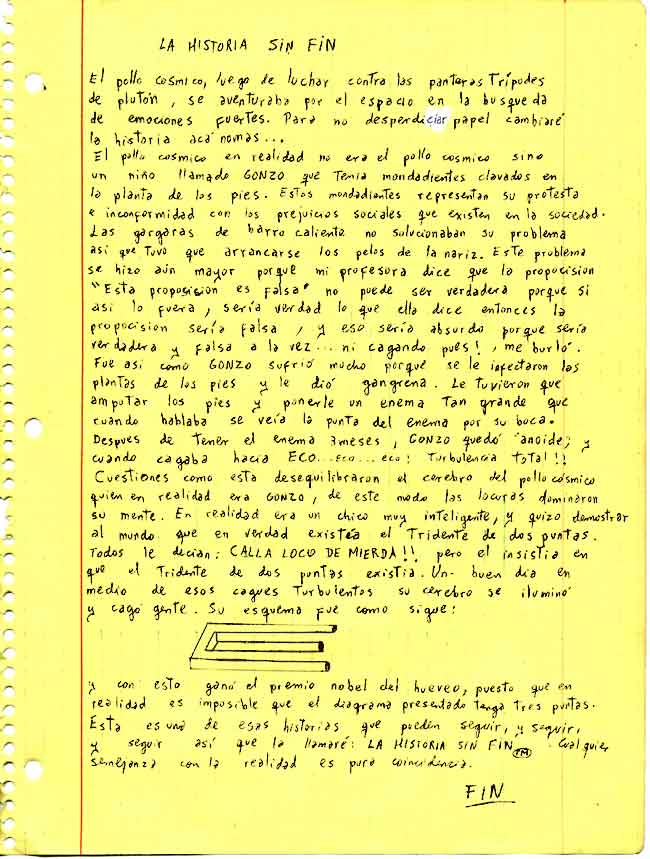 LA HISTORIA SIN FIN
El pollo cosmico, luego de luchar contra las panteras Trípodes
de plutón, se aventuraba por el espacio en la busqueda
de emociones fuertes. Para no desperdiciar papel cambiaré
la historia acá nomas...
El pollo cosmico en realidad no era el pollo cosmico sino
un niño llamado GONZO que Tenía mondadientes clavados en
la planta de los pies. Estos mondadientes representan su protesta
e inconformidad con los prejuicios sociales que existen en la sociedad.
Las gargaras de barro caliente no solucionaban su problema
así que Tuvo que arrancarse los pelos de la nariz. Este problema
se hizo aún mayor porque mi profesora dice que la propocision
"Esta proposición es falsa" no puede ser verdadera porque si
asi lo fuera, sería verdad lo que ella dice entonces la
propocision sería falsa, y eso sería absurdo porque sería
verdadera y falsa a la vez... ni cagando pues!, me burló.
Fue así como GONZO sufrió mucho porque se le infectaron las
plantas de los pies y le dió gangrena. Le tuvieron que
amputar los pies y ponerle un enema Tan grande que
cuando hablaba se veía la punta del enema por su boca.
Despues de tener el enema 3 meses, GONZO quedó angoide, y
cuando cagaba hacia ECO...eco...eco! Turbulencia total!!
Cuestiones como esta desequilibraron el cerebro del pollo cósmico
quien en realidad era GONZO, de este modo las locuras dominaron
su mente. En realidad era un chico muy inteligente, y quizo demostrar
al mundo que en verdad existía el Tridente de dos puntas.
Todos le decian: CALLA LOCO DE MIERDA!! pero el insistia en
que el Tridente de dos puntas existia. Un buen dia en
medio de esos caques Turbulentos su cerebro se iluminó
y cagó gente. Su esquema fue como sigue:
y con esto ganó el premio nobel del hueveo, puesto que en
realidad es imposible que el diagrama presentado tenga tres puntas.
Esta es una de esas historias que pueden seguir, y seguir,
y seguir así que la llamaré: LA HISTORIA SIN FIN TM. Cualquier
semejanza con la realidad es pura coincidencia.
FIN